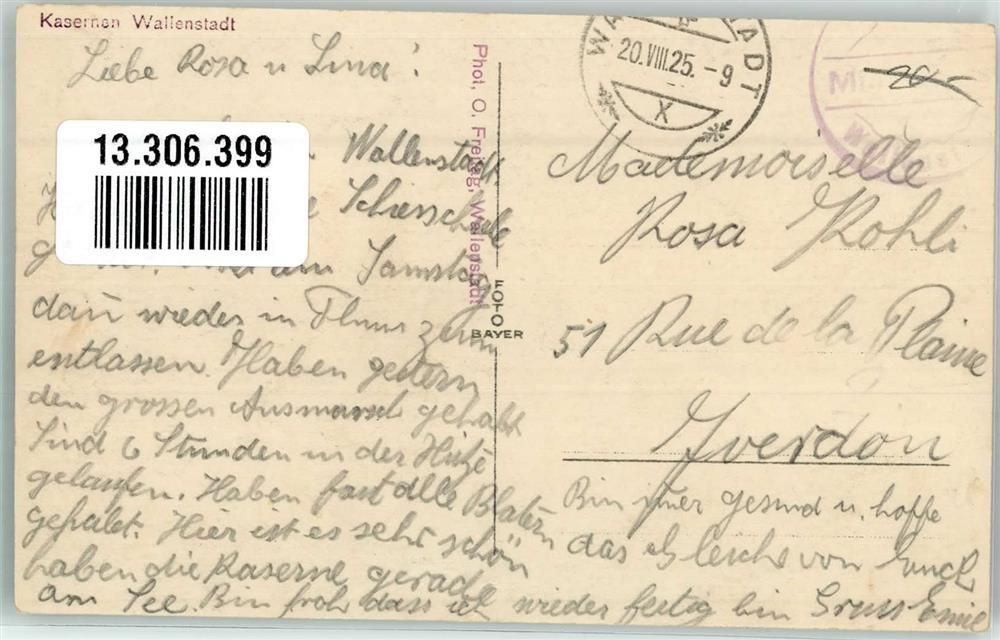 Kasernen Wallenstadt
Liebe Rosa u Lina!
13.306.399
Wallenstadt
Schiesschule
Samstag
dann wieder in Flums zum
entlassen. Haben gestern
den grossen Ausmarsch gehabt
Sind 6 Stunden in der Hitze
gelaufen. Haben fast alle Blatern
gehabt. Hier ist es sehr schön
haben die Kaserne gerade
am See. Bin froh dass ich wieder fertig bin Gruss Emil
Phot. O. Freitag, Wallenstadt
FOTO
BAYER
20.VIII.25.-9
X
Mademoiselle
Rosa Kohli
51 Rue de la Plaine
Yverdon
Bin gesund u. hoffe
das Gleiche von Euch